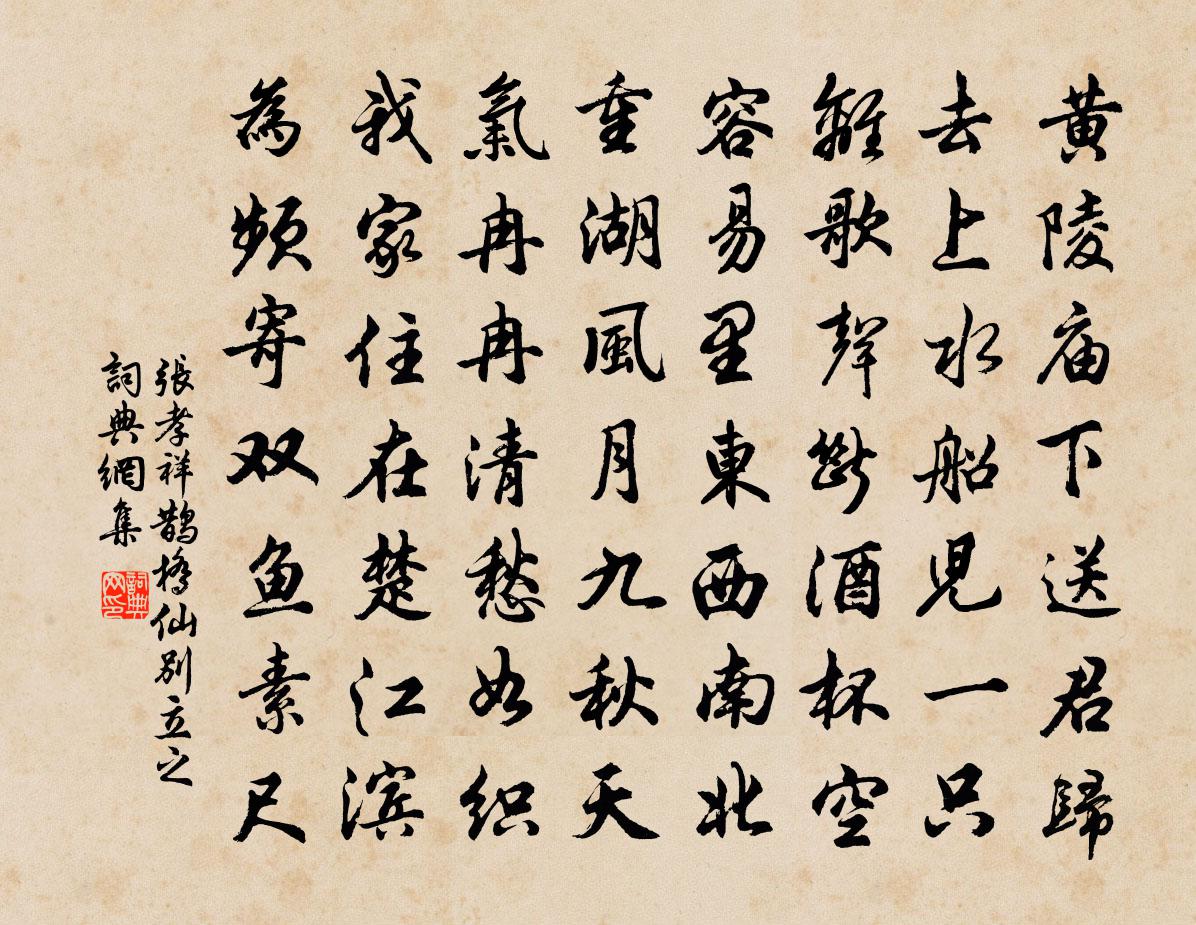 黄陵庙下送君歸
去上水船児一只
離歌聲斷酒杯空
容易里東西南北
重湖風月九秋天
氣冉冉清愁如织
我家住在楚江滨
為频寄双鱼素尺
張孝祥鵲橋仙别立之
詞典網集
詞典网印